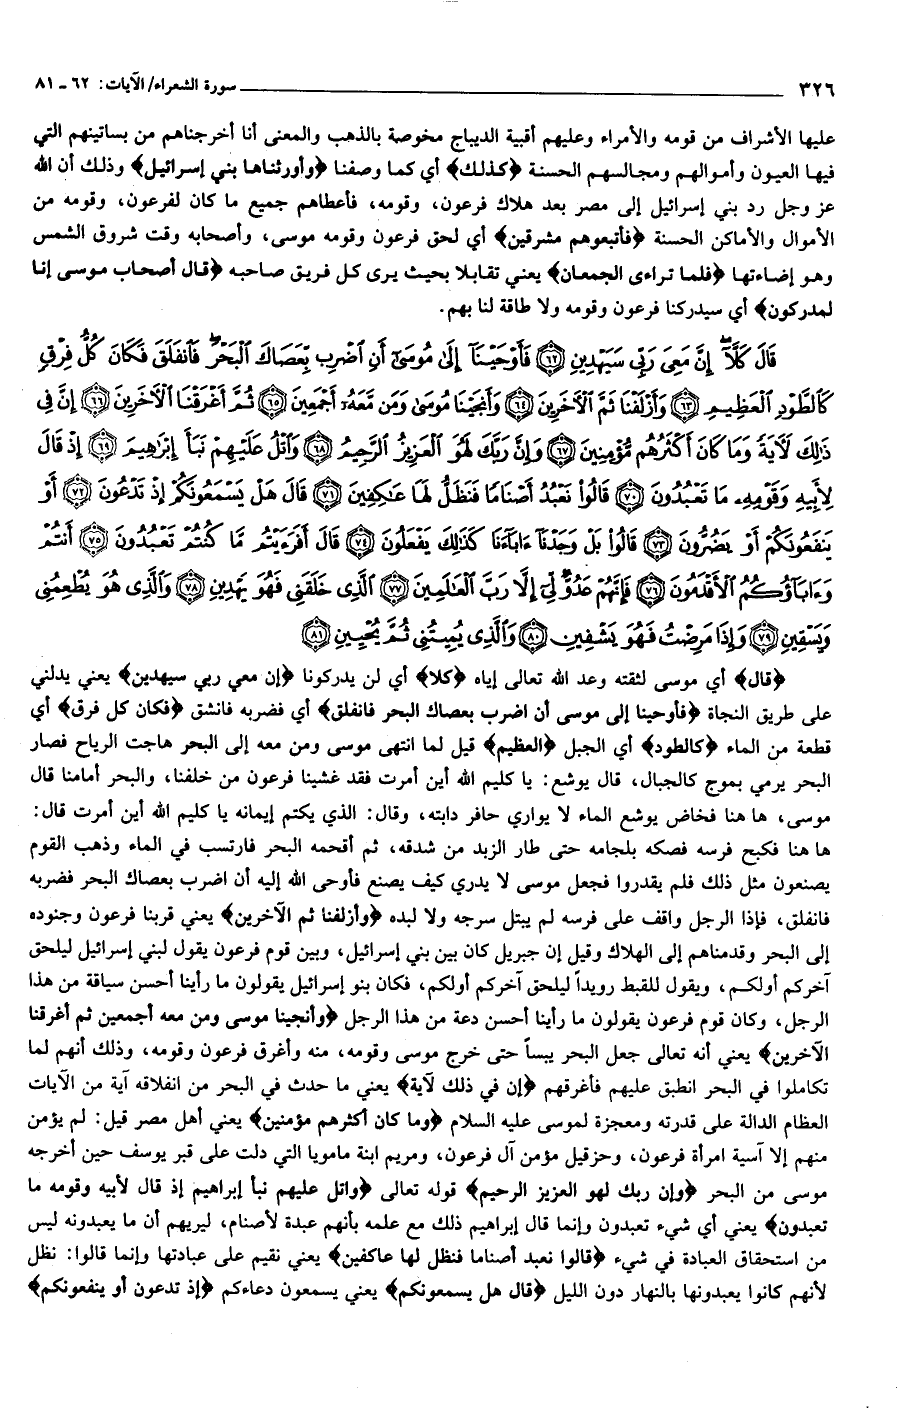 ٣٢٦ سورة الشعراء/الآيات: ٦٢ ـ ٨١
عليها الأشراف من قومه والأمراء وعليهم أقبية الديباج مخوصة بالذهب والمعنى أنا أخرجناهم من بساتينهم التي
فيها العيون وأموالهم ومجالسهم الحسنة ﴿كذلك﴾ أي كما وصفنا ﴿وأورثناها بني إسرائيل﴾ وذلك أن الله
عز وجل رد بني إسرائيل إلى مصر بعد هلاك فرعون، وقومه، فأعطاهم جميع ما كان لفرعون، وقومه من
الأموال والأماكن الحسنة ﴿فأتبعوهم مشرقين﴾ أي لحق فرعون وقومه موسى، وأصحابه وقت شروق الشمس
وهو إضاءتها ﴿فلما تراءى الجمعان﴾ يعني تقابلا بحيث يرى كل فريق صاحبه ﴿قال أصحاب موسى إنا
لمدركون﴾ أي سيدركنا فرعون وقومه ولا طاقة لنا بهم.
قَالَ كَلَّآ إِنَّ مَعِيَ رَبِّي سَيَهْدِينِ ﴿٦٢﴾ فَأَوْحَيْنَآ إِلَىٰ مُوسَىٰٓ أَنِ ٱضْرِب بِّعَصَاكَ ٱلْبَحْرَ فَٱنفَلَقَ فَكَانَ كُلُّ فِرْقٍ
كَٱلطَّوْدِ ٱلْعَظِيمِ ﴿٦٣﴾ وَأَزْلَفْنَا ثَمَّ ٱلْآخَرِينَ ﴿٦٤﴾ وَأَنجَيْنَا مُوسَىٰ وَمَن مَّعَهُۥٓ أَجْمَعِينَ ﴿٦٥﴾ ثُمَّ أَغْرَقْنَا ٱلْآخَرِينَ ﴿٦٦﴾ إِنَّ فِي
ذَٰلِكَ لَآيَةً وَمَا كَانَ أَكْثَرُهُم مُّؤْمِنِينَ ﴿٦٧﴾ وَإِنَّ رَبَّكَ لَهُوَ ٱلْعَزِيزُ ٱلرَّحِيمُ ﴿٦٨﴾ وَٱتْلُ عَلَيْهِمْ نَبَأَ إِبْرَٰهِيمَ ﴿٦٩﴾ إِذْ قَالَ
لِأَبِيهِ وَقَوْمِهِۦ مَا تَعْبُدُونَ ﴿٧٠﴾ قَالُوا۟ نَعْبُدُ أَصْنَامًا فَنَظَلُّ لَهَا عَٰكِفِينَ ﴿٧١﴾ قَالَ هَلْ يَسْمَعُونَكُمْ إِذْ تَدْعُونَ ﴿٧٢﴾ أَوْ
يَنفَعُونَكُمْ أَوْ يَضُرُّونَ ﴿٧٣﴾ قَالُوا۟ بَلْ وَجَدْنَآ ءَابَآءَنَا كَذَٰلِكَ يَفْعَلُونَ ﴿٧٤﴾ قَالَ أَفَرَءَيْتُم مَّا كُنتُمْ تَعْبُدُونَ ﴿٧٥﴾ أَنتُمْ
وَءَابَآؤُكُمُ ٱلْأَقْدَمُونَ ﴿٧٦﴾ فَإِنَّهُمْ عَدُوٌّ لِّيٓ إِلَّا رَبَّ ٱلْعَٰلَمِينَ ﴿٧٧﴾ ٱلَّذِي خَلَقَنِي فَهُوَ يَهْدِينِ ﴿٧٨﴾ وَٱلَّذِي هُوَ يُطْعِمُنِي
وَيَسْقِينِ ﴿٧٩﴾ وَإِذَا مَرِضْتُ فَهُوَ يَشْفِينِ ﴿٨٠﴾ وَٱلَّذِي يُمِيتُنِي ثُمَّ يُحْيِينِ ﴿٨١﴾
﴿قال﴾ أي موسى لثقته وعد الله تعالى إياه ﴿كلا﴾ أي لن يدركونا ﴿إن معي ربي سيهدين﴾ يعني يدلني
على طريق النجاة ﴿فأوحينا إلى موسى أن اضرب بعصاك البحر فانفلق﴾ أي فضربه فانشق ﴿فكان كل فرق﴾ أي
قطعة من الماء ﴿كالطود﴾ أي الجبل ﴿العظيم﴾ قيل لما انتهى موسى ومن معه إلى البحر هاجت الرياح فصار
البحر يرمي بموج كالجبال، قال يوشع: يا كليم الله أين أمرت فقد غشينا فرعون من خلفنا، والبحر أمامنا قال
موسى، ها هنا فخاض يوشع الماء لا يواري حافر دابته، وقال: الذي يكتم إيمانه يا كليم الله أين أمرت قال:
ها هنا فكبح فرسه فصكه بلجامه حتى طار الزبد من شدقه، ثم أقحمه البحر فارتسب في الماء وذهب القوم
يصنعون مثل ذلك فلم يقدروا فجعل موسى لا يدري كيف يصنع فأوحى الله إليه أن اضرب بعصاك البحر فضربه
فانفلق، فإذا الرجل واقف على فرسه لم يبتل سرجه ولا لبده ﴿وأزلفنا ثم الآخرين﴾ يعني قربنا فرعون وجنوده
إلى البحر وقدمناهم إلى الهلاك وقيل إن جبريل كان بين بني إسرائيل، وبين قوم فرعون يقول لبني إسرائيل ليلحق
آخركم أولكم، ويقول للقبط رويداً ليلحق آخركم أولكم، فكان بنو إسرائيل يقولون ما رأينا أحسن سياقة من هذا
الرجل، وكان قوم فرعون يقولون ما رأينا أحسن دعة من هذا الرجل ﴿وأنجينا موسى ومن معه أجمعين ثم أغرقنا
الآخرين﴾ يعني أنه تعالى جعل البحر يبساً حتى خرج موسى وقومه، منه وأغرق فرعون وقومه، وذلك أنهم لما
تكاملوا في البحر انطبق عليهم فأغرقهم ﴿إن في ذلك لآية﴾ يعني ما حدث في البحر من انفلاقه آية من الآيات
العظام الدالة على قدرته ومعجزة لموسى عليه السلام ﴿وما كان أكثرهم مؤمنين﴾ يعني أهل مصر قيل: لم يؤمن
منهم إلا آسية امرأة فرعون، وحزقيل مؤمن آل فرعون، ومريم ابنة مامويا التي دلت على قبر يوسف حين أخرجه
موسى من البحر ﴿وإن ربك لهو العزيز الرحيم﴾ قوله تعالى ﴿واتل عليهم نبأ إبراهيم إذ قال لأبيه وقومه ما
تعبدون﴾ يعني أي شيء تعبدون وإنما قال إبراهيم ذلك مع علمه بأنهم عبدة لأصنام، ليريهم أن ما يعبدونه ليس
من استحقاق العبادة في شيء ﴿قالوا نعبد أصناما فنظل لها عاكفين﴾ يعني نقيم على عبادتها وإنما قالوا: نظل
لأنهم كانوا يعبدونها بالنهار دون الليل ﴿قال هل يسمعونكم﴾ يعني يسمعون دعاءكم ﴿إذ تدعون أو ينفعونكم﴾